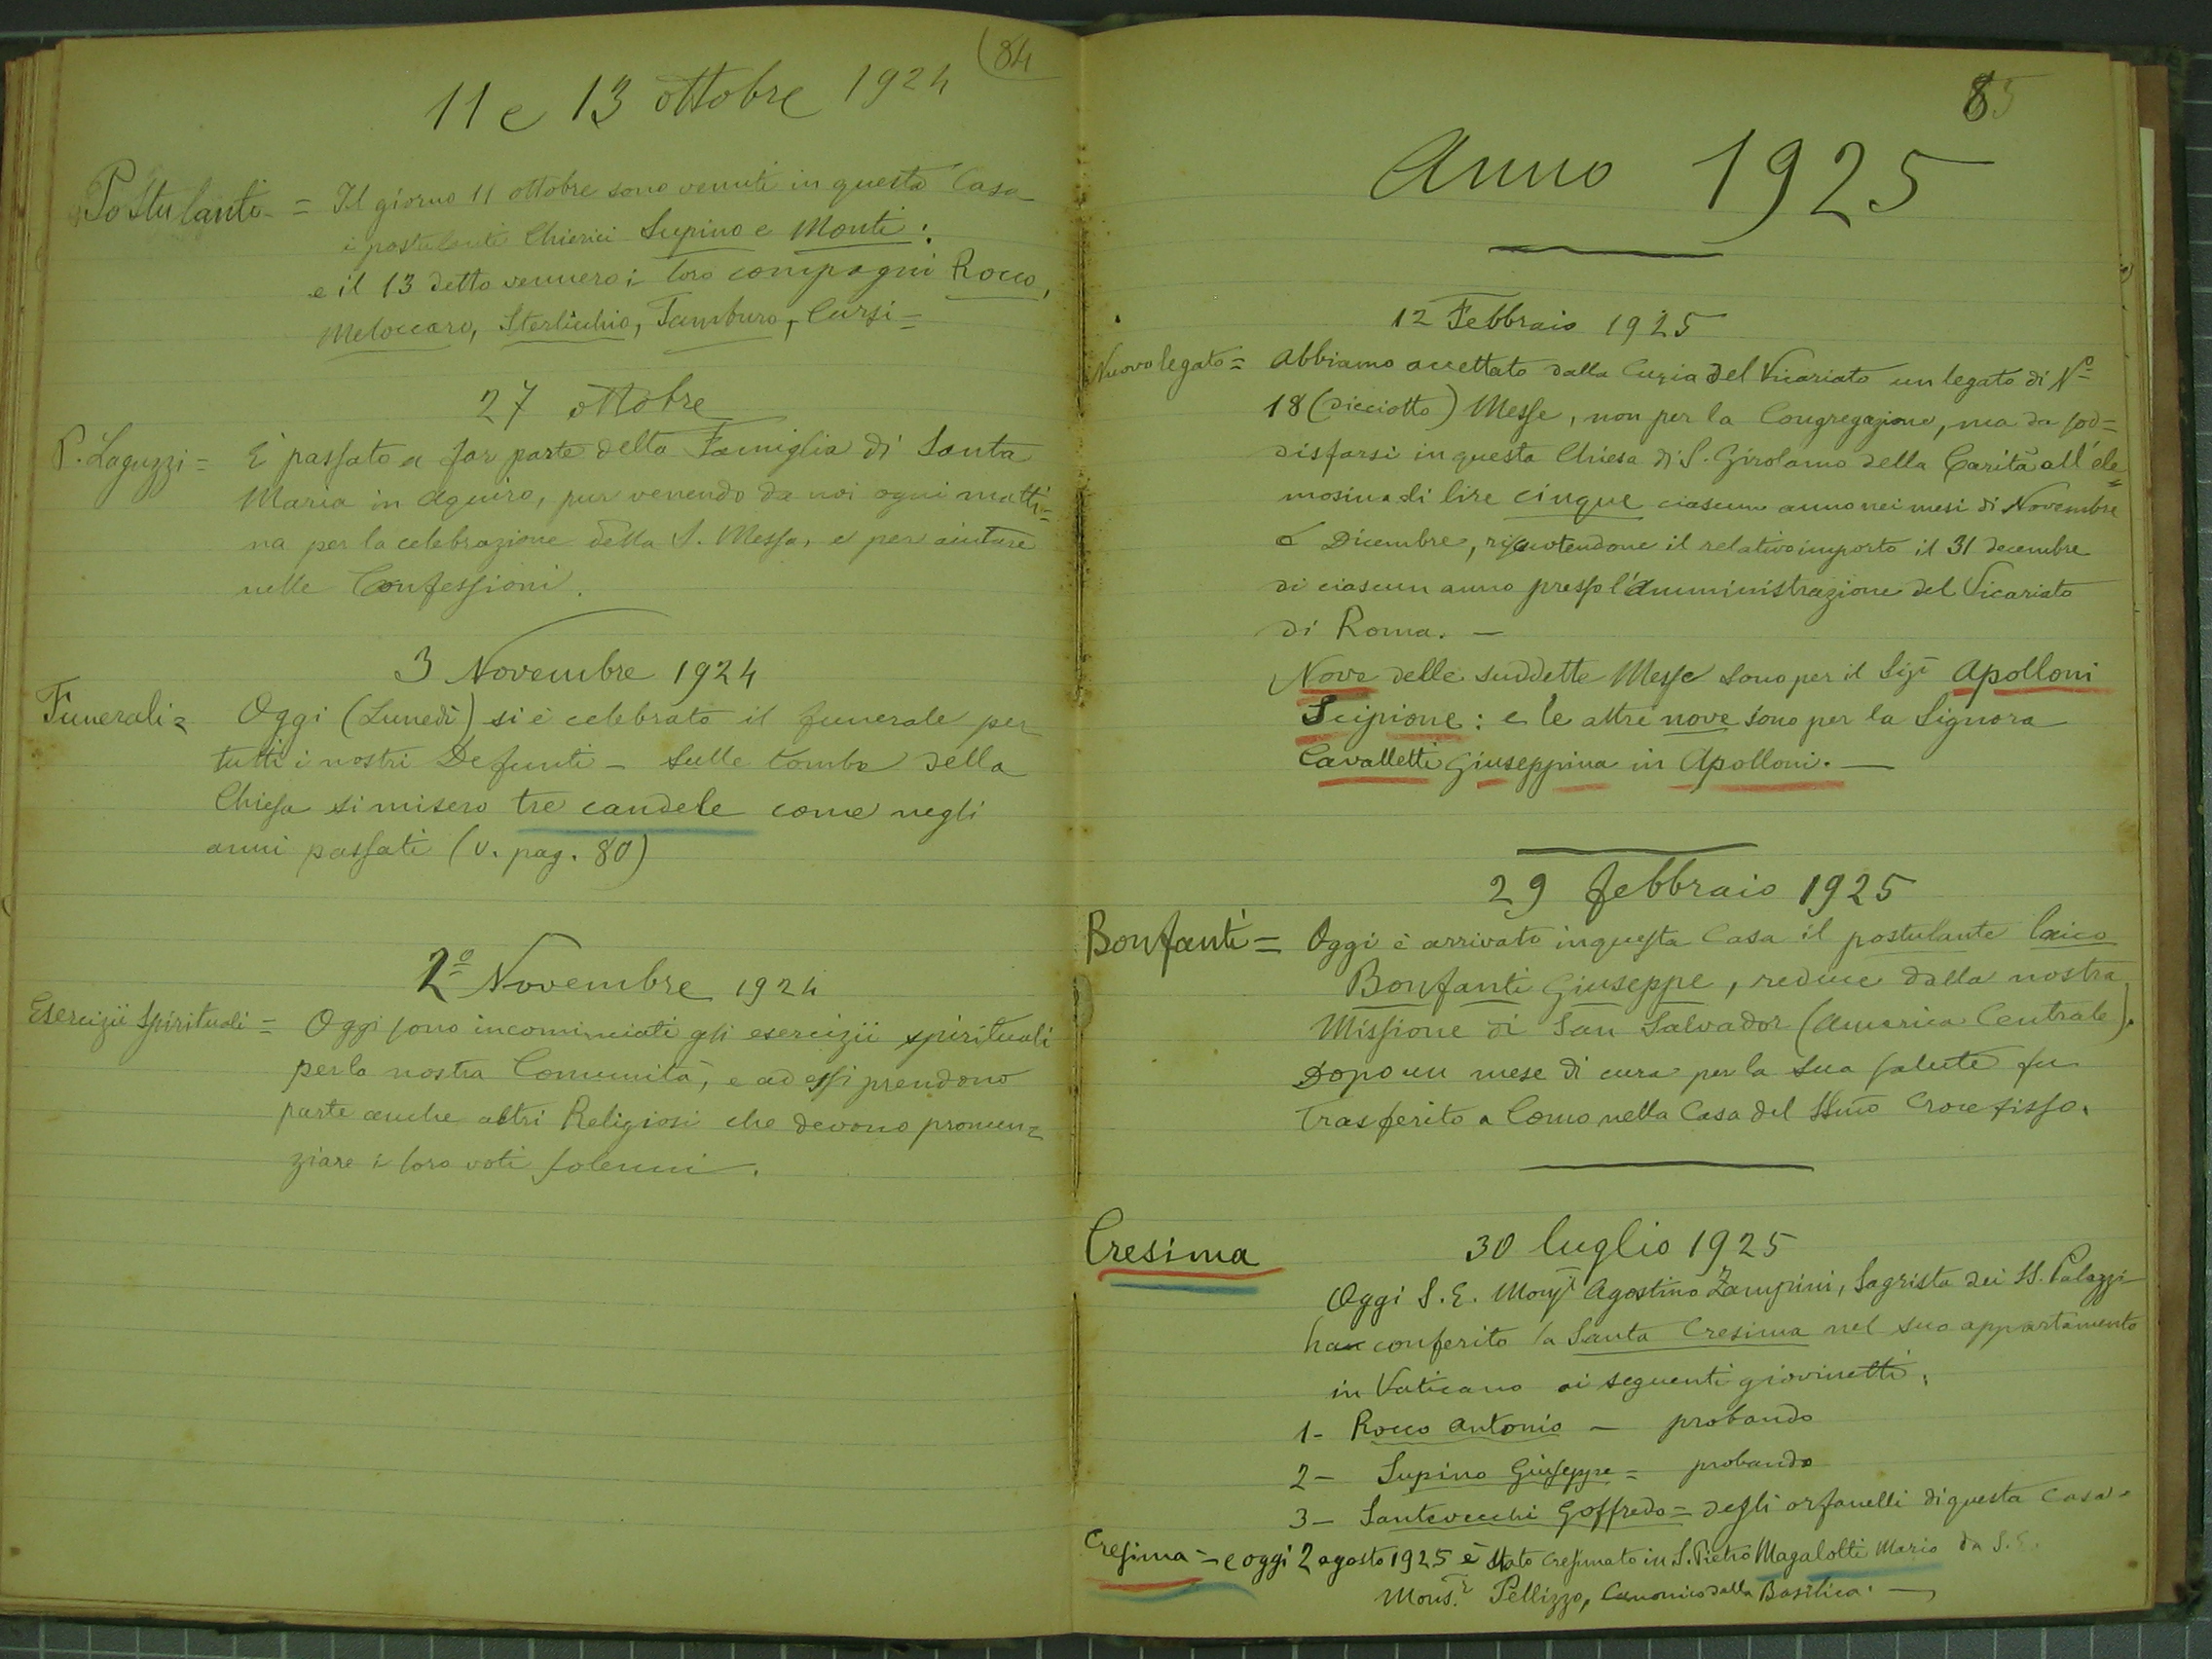 84
11 e 13 ottobre 1924
Postulanti = Il giorno 11 ottobre sono venuti in questa Casa
i postulanti Chierici Supino e Monti:
e il 13 detto vennero i loro compagni Rocco,
Meloccaro, Sterlicchio, Tamburo, Cursi =
27 ottobre
P. Laguzzi = È passato a far parte della Famiglia di Santa
Maria in Aquiro, pur venendo da noi ogni matti=
na per la celebrazione della S. Messa, e per aiutare
nelle Confessioni.
3 Novembre 1924
Funerali = Oggi (Lunedì) si è celebrato il funerale per
tutti i nostri Defunti - Sulle tombe della
Chiesa si misero tre candele come negli
anni passati (v. pag. 80)
2º Novembre 1924
Esercizii Spirituali = Oggi sono incominciati gli esercizii spirituali
per la nostra Comunità, e ad essi prendono
parte anche altri Religiosi che devono pronun=
ziare i loro voti solenni.
85
Anno 1925
12 Febbraio 1925
Nuovo legato = Abbiamo accettato dalla Curia del Vicariato un legato di Nº
18 (dicciotto) Messe, non per la Congregazione, ma da sod=
disfarsi in questa Chiesa di S. Girolamo della Carità all'ele=
mosina di lire cinque ciascun anno nei mesi di Novembre
e Dicembre, riscuotendone il relativo importo il 31 decembre
di ciascun anno presso l'Amministrazione del Vicariato
di Roma. —
Nove delle suddette Messe sono per il Sigr Apolloni
Scipione: e le altre nove sono per la Signora
Cavalletti Giuseppina in Apolloni. —
29 febbraio 1925
Bonfanti = Oggi è arrivato in questa Casa il postulante laico
Bonfanti Giuseppe, reduce dalla nostra
Missione di San Salvador (America Centrale).
Dopo un mese di cura per la sua salute fu
trasferito a Como nella Casa del SSmo Crocefisso.
Cresima 30 luglio 1925
Oggi S. E. Monsr Agostino Zampini, Sagrista dei SS. Palazzi
ha conferito la Santa Cresima nel suo appartamento
in Vaticano ai seguenti giovinetti,
1- Rocco Antonio — probando
2- Supino Giuseppe = probando
3- Santevecchi Goffredo = degli orfanelli di questa Casa.
Cresima = e oggi 2 agosto 1925 è stato cresimato in S. Pietro Magalotti Mario da S. E.
Mons.r Pellizzo, Canonico della Basilica. —